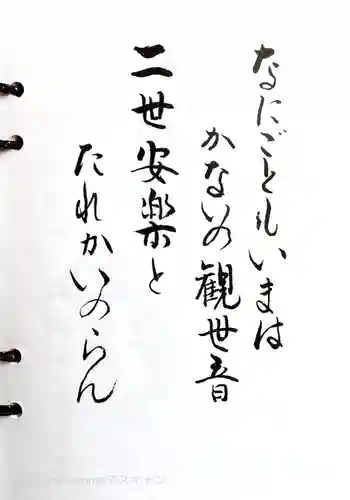 なにごともいまは
かないの観世音
二世安楽と
たれかいのらん
でスキャン